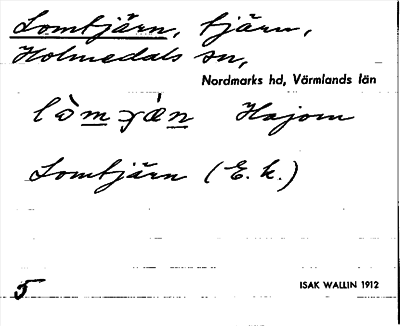 Lomtjärn, tjärn,
Holmedals sn,
Nordmarks hd, Värmlands län
Hajom
Lomtjärn (E. k.)
5
ISAK WALLIN 1912